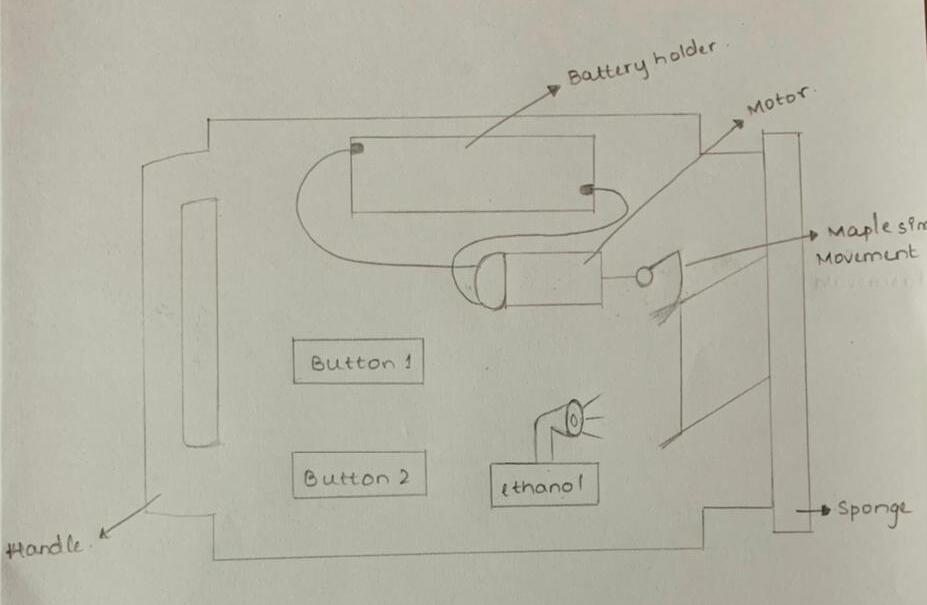 Battery holder.
Motor.
Maple sim
Movement
Button 1
Button 2
ethanol
Sponge
Handle.